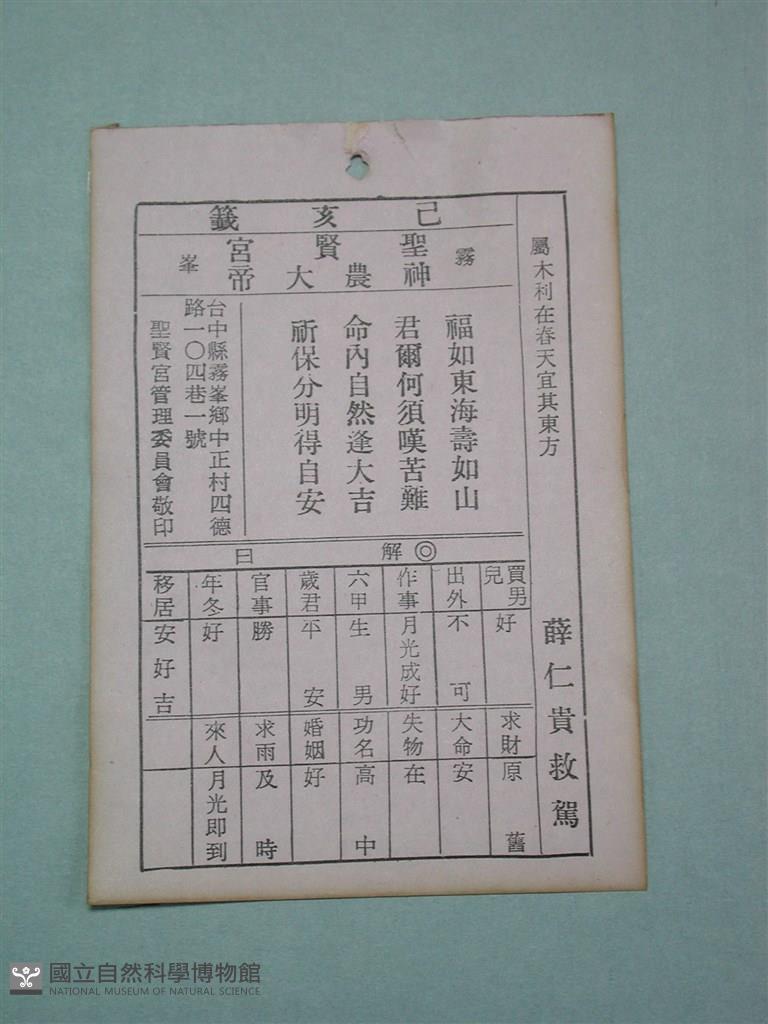 屬木利在春天宜其東方
薛仁貴救駕
己亥籤
霧峯
聖賢宮
神農大帝
福如東海壽如山
君爾何須嘆苦難
命內自然逢大吉
祈保分明得自安
台中縣霧峯鄉中正村四德
路一〇四巷一號
聖賢宮管理委員會敬印
◎解曰
買男兒 好
出外 不可
作事 月光成好
六甲 生男
歲君 平安
官事 勝
年冬 好
移居 安好吉
求財 原舊
大命 安
失物 在
功名 高中
婚姻 好
求雨 及時
來人 月光即到
國立自然科學博物館
NATIONAL MUSEUM OF NATURAL SCIENCE